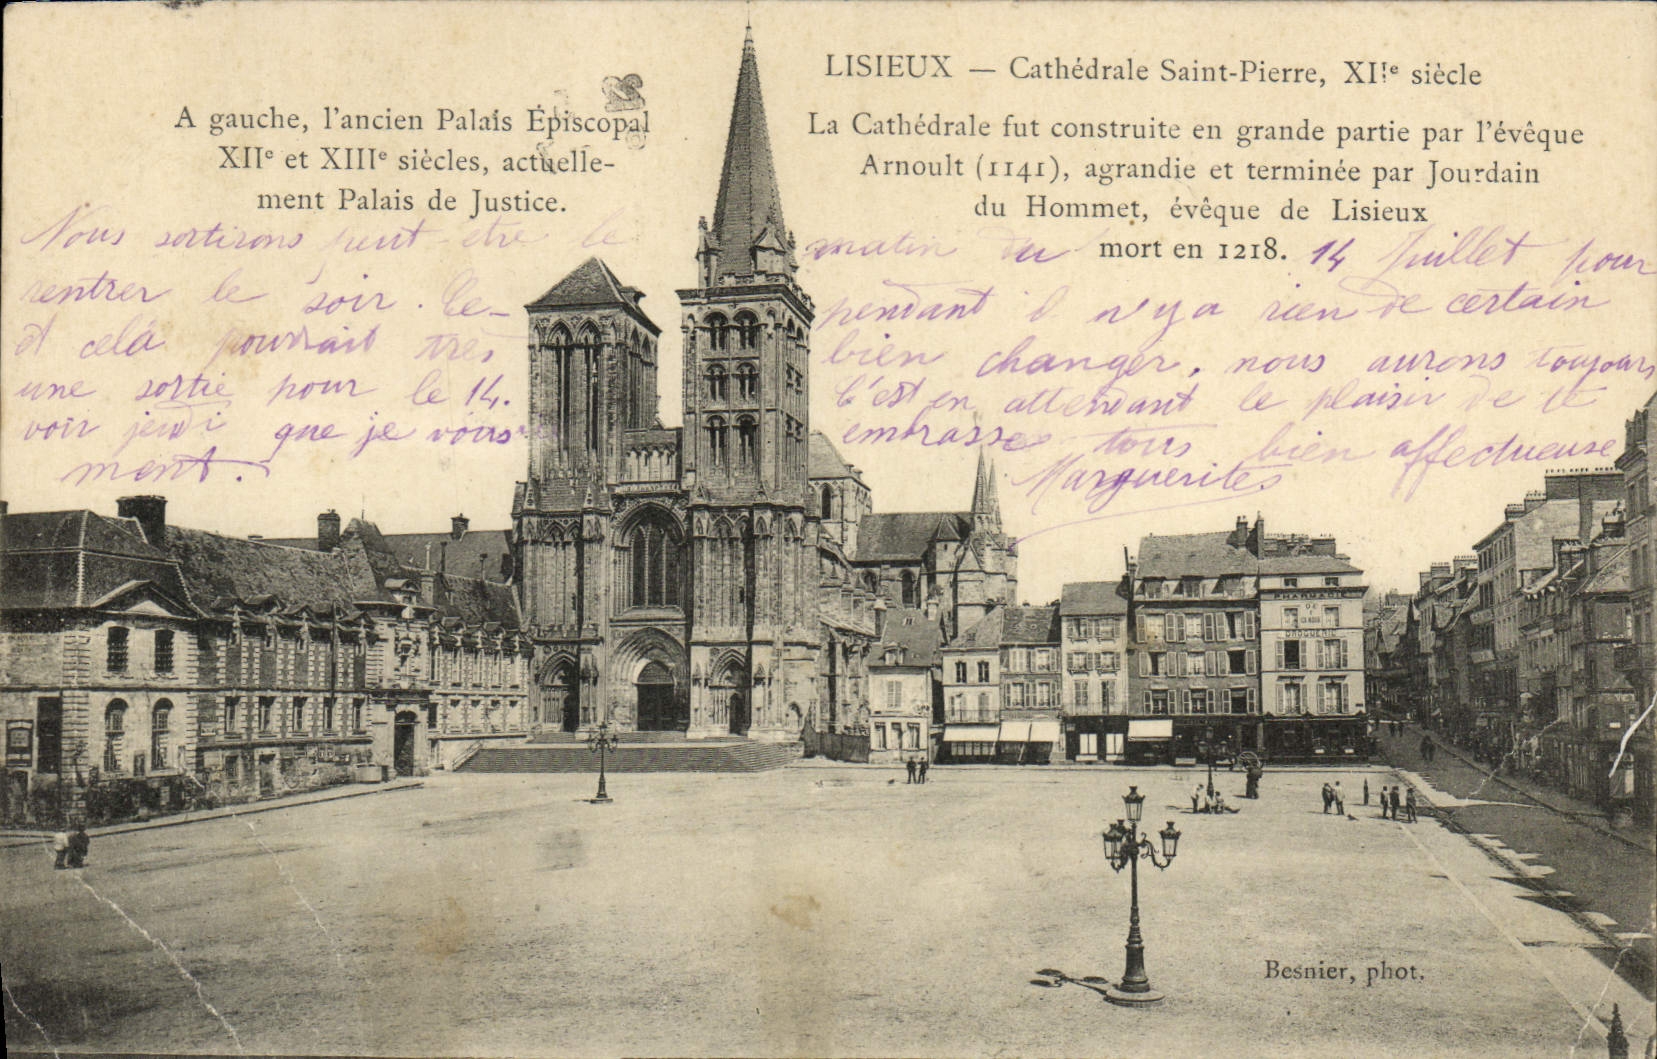 LISIEUX — Cathédrale Saint-Pierre, XIIe siècle
A gauche, l'ancien Palais Épiscopal
XIIe et XIIIe siècles, actuelle-
ment Palais de Justice.
La Cathédrale fut construite en grande partie par l'évêque
Arnoult (1141), agrandie et terminée par Jourdain
du Hommet, évêque de Lisieux
mort en 1218.
Nous sortirons peut-etre le matin du 14 Juillet pour
rentrer le soir. Ce- pendant il n'y a rien de certain
et celà pourrait très bien changer, nous aurons toujours
une sortie pour le 14. C'est en attendant le plaisir de te
voir jeudi que je vous embrasse tous bien affectueuse
ment.
Marguerite.
PHARMACIE
DE
DROGUERIE
Besnier, phot.